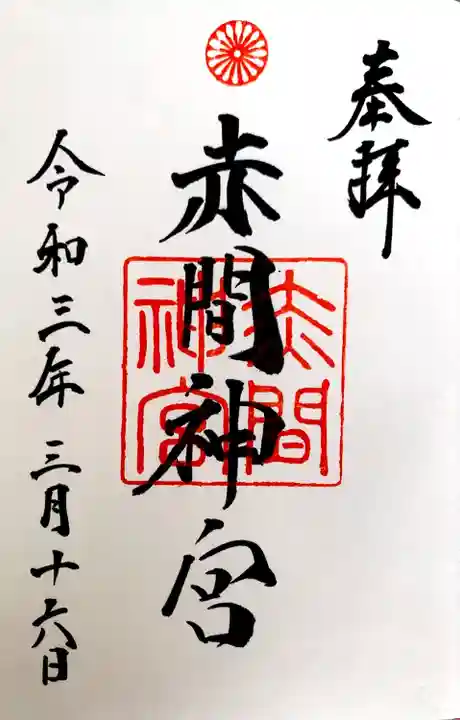 奉拝
赤間神宮
赤間神宮
令和三年三月十六日